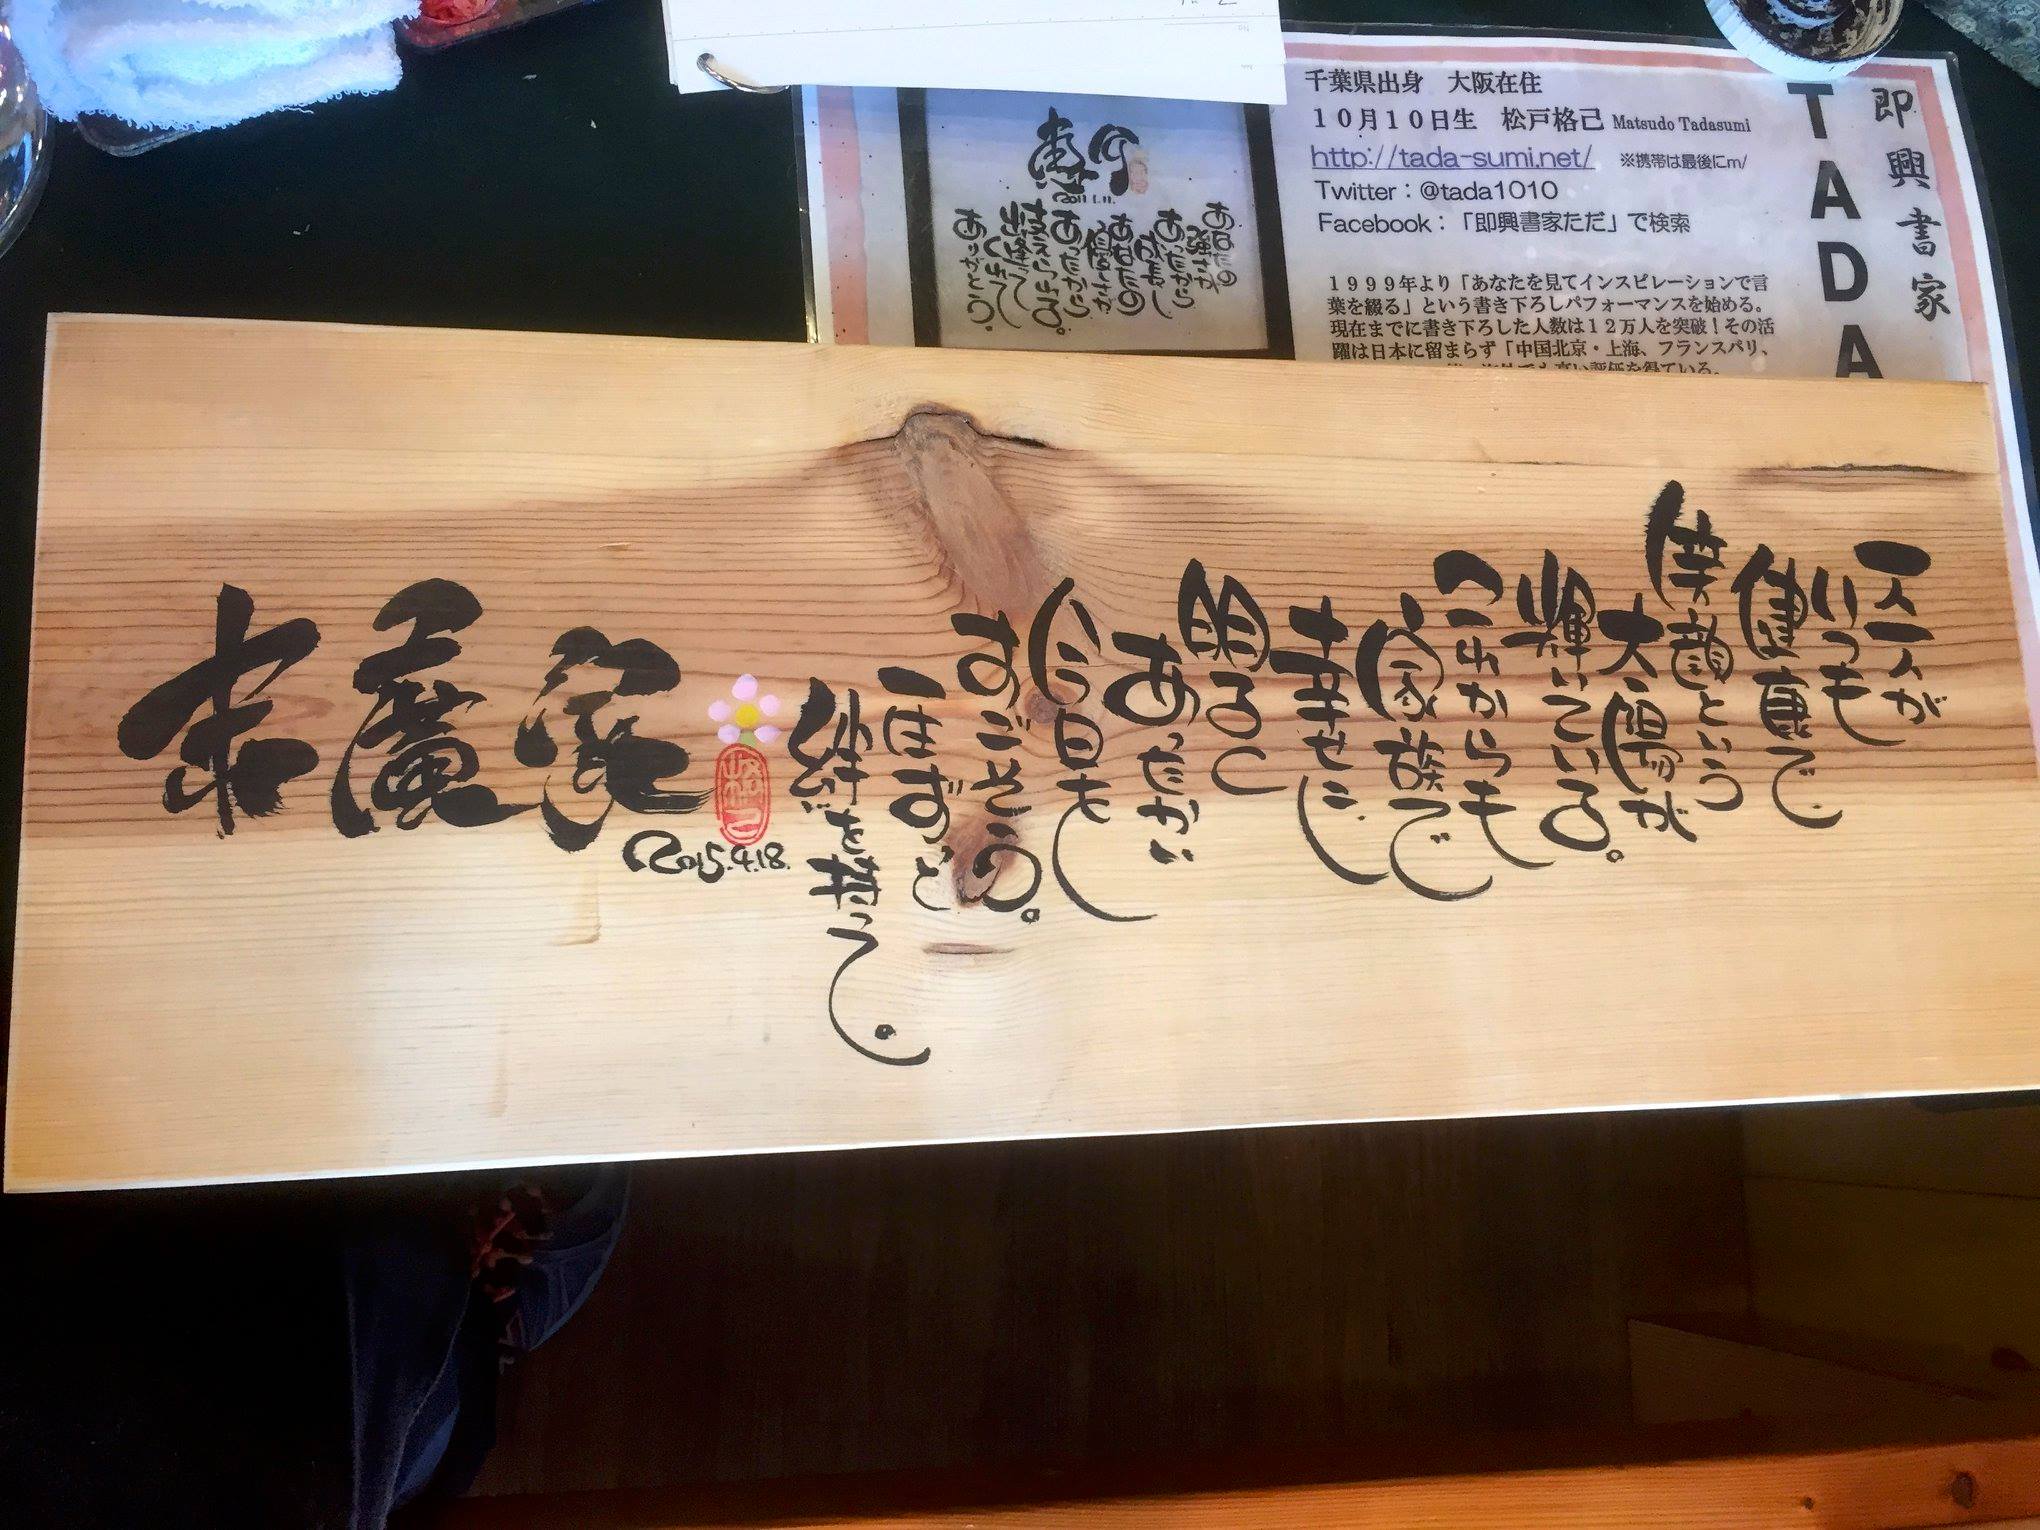 千葉県出身　大阪在住
10月10日生　松戸格己 Matsudo Tadasumi
http://tada-sumi.net/　※携帯は最後にm/
Twitter：@tada1010
Facebook：「即興書家ただ」で検索
1999年より「あなたを見てインスピレーションで言
葉を綴る」という書き下ろしパフォーマンスを始める。
現在までに書き下ろした人数は12万人を突破！その活
躍は日本に留まらず「中国北京・上海、フランスパリ、
海外でも高い評価を得ている。
即興書家
TADA
あなたの
強さが
あったから
あなたの
優しさが
あったから
ありがとう。
2011.1.11.
一人一人が
いつも
健康で
笑顔という
太陽が
輝いている。
これからも
家族で
幸せに
明るく
あったかい
今日を
すごそう。
一生ずっと
絆を持って。
2015.4.18.
格己
末廣家